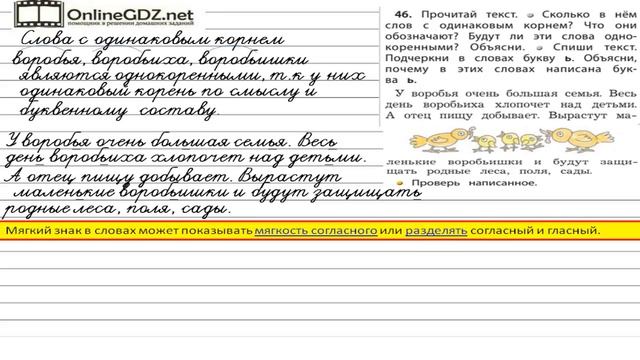 OnlineGDZ.net
помощники в решении домашних заданий
Слова с одинаковым корнем
воробья, воробьиха, воробьишки
являются однокоренными, т.к у них
одинаковый корень по смыслу и
буквенному составу.
У воробья очень большая семья. Весь
день воробьиха хлопочет над детьми.
А отец пищу добывает. Вырастут
маленькие воробьишки и будут защищать
родные леса, поля, сады.
46. Прочитай текст. Сколько в нём
слов с одинаковым корнем? Что они
обозначают? Будут ли эти слова одно-
коренными? Объясни. Спиши текст.
Подчеркни в словах букву ь. Объясни,
почему в этих словах написана бук-
ва ь.
У воробья очень большая семья. Весь
день воробьиха хлопочет над детьми.
А отец пищу добывает. Вырастут ма-
ленькие воробьишки и будут защи-
щать родные леса, поля, сады.
Проверь написанное.
Мягкий знак в словах может показывать мягкость согласного или разделять согласный и гласный.